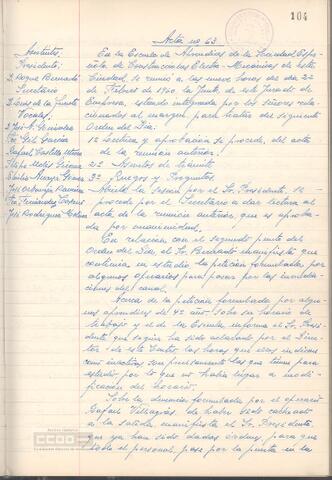 104
Acta nº 63
Asistentes
Presidente:
D. Roque Bernardo
Secretario
D. Luis de la Fuente
Vocales:
D. José A. González
Gil García
Rafael Castillo
Felipe Melis
José Rodríguez
En la Escuela de Aprendices de la Sociedad Espa-
ñola de Construcciones Electro-Mecánicas de esta
Ciudad, se reunió a las nueve horas del día 22
de Febrero de 1960 la Junta de este Jurado de
Empresa, estando integrada por los señores rela-
cionados al margen para tratar del siguiente
Orden del Día:
1º Lectura y aprobación si procede, del acta
de la reunión anterior.
2º Asuntos de trámite
3º Ruegos y Preguntas.
Abierta la sesión por el Sr. Presidente se
procede por el Secretario a dar lectura al
acta de la reunión anterior, que es aproba-
da por unanimidad.
En relación con el segundo punto del
Orden del Día, el Sr. Bernardo manifiesta que
continúa en estudio la petición formulada por
algunos operarios para pasar por las inmedia-
ciones del canal.
Acerca de la petición formulada por algu-
nos aprendices de 4º año, sobre su horario de
trabajo y el de la Escuela informa el Sr. Presi-
dente que según ha sido aclarado por el Direc-
tor de este Centro las horas que ellos indican
como inactivas son precisamente las que tienen para
estudio por lo que no habrá lugar a modi-
ficación del horario.
Sobre la denuncia formulada por el operario
Rafael Villagrás de haber sido cacheado
a la salida, manifiesta el Sr. Presidente
que ya han sido dadas órdenes para que
todo el personal, pase por la puerta en la
CCOO